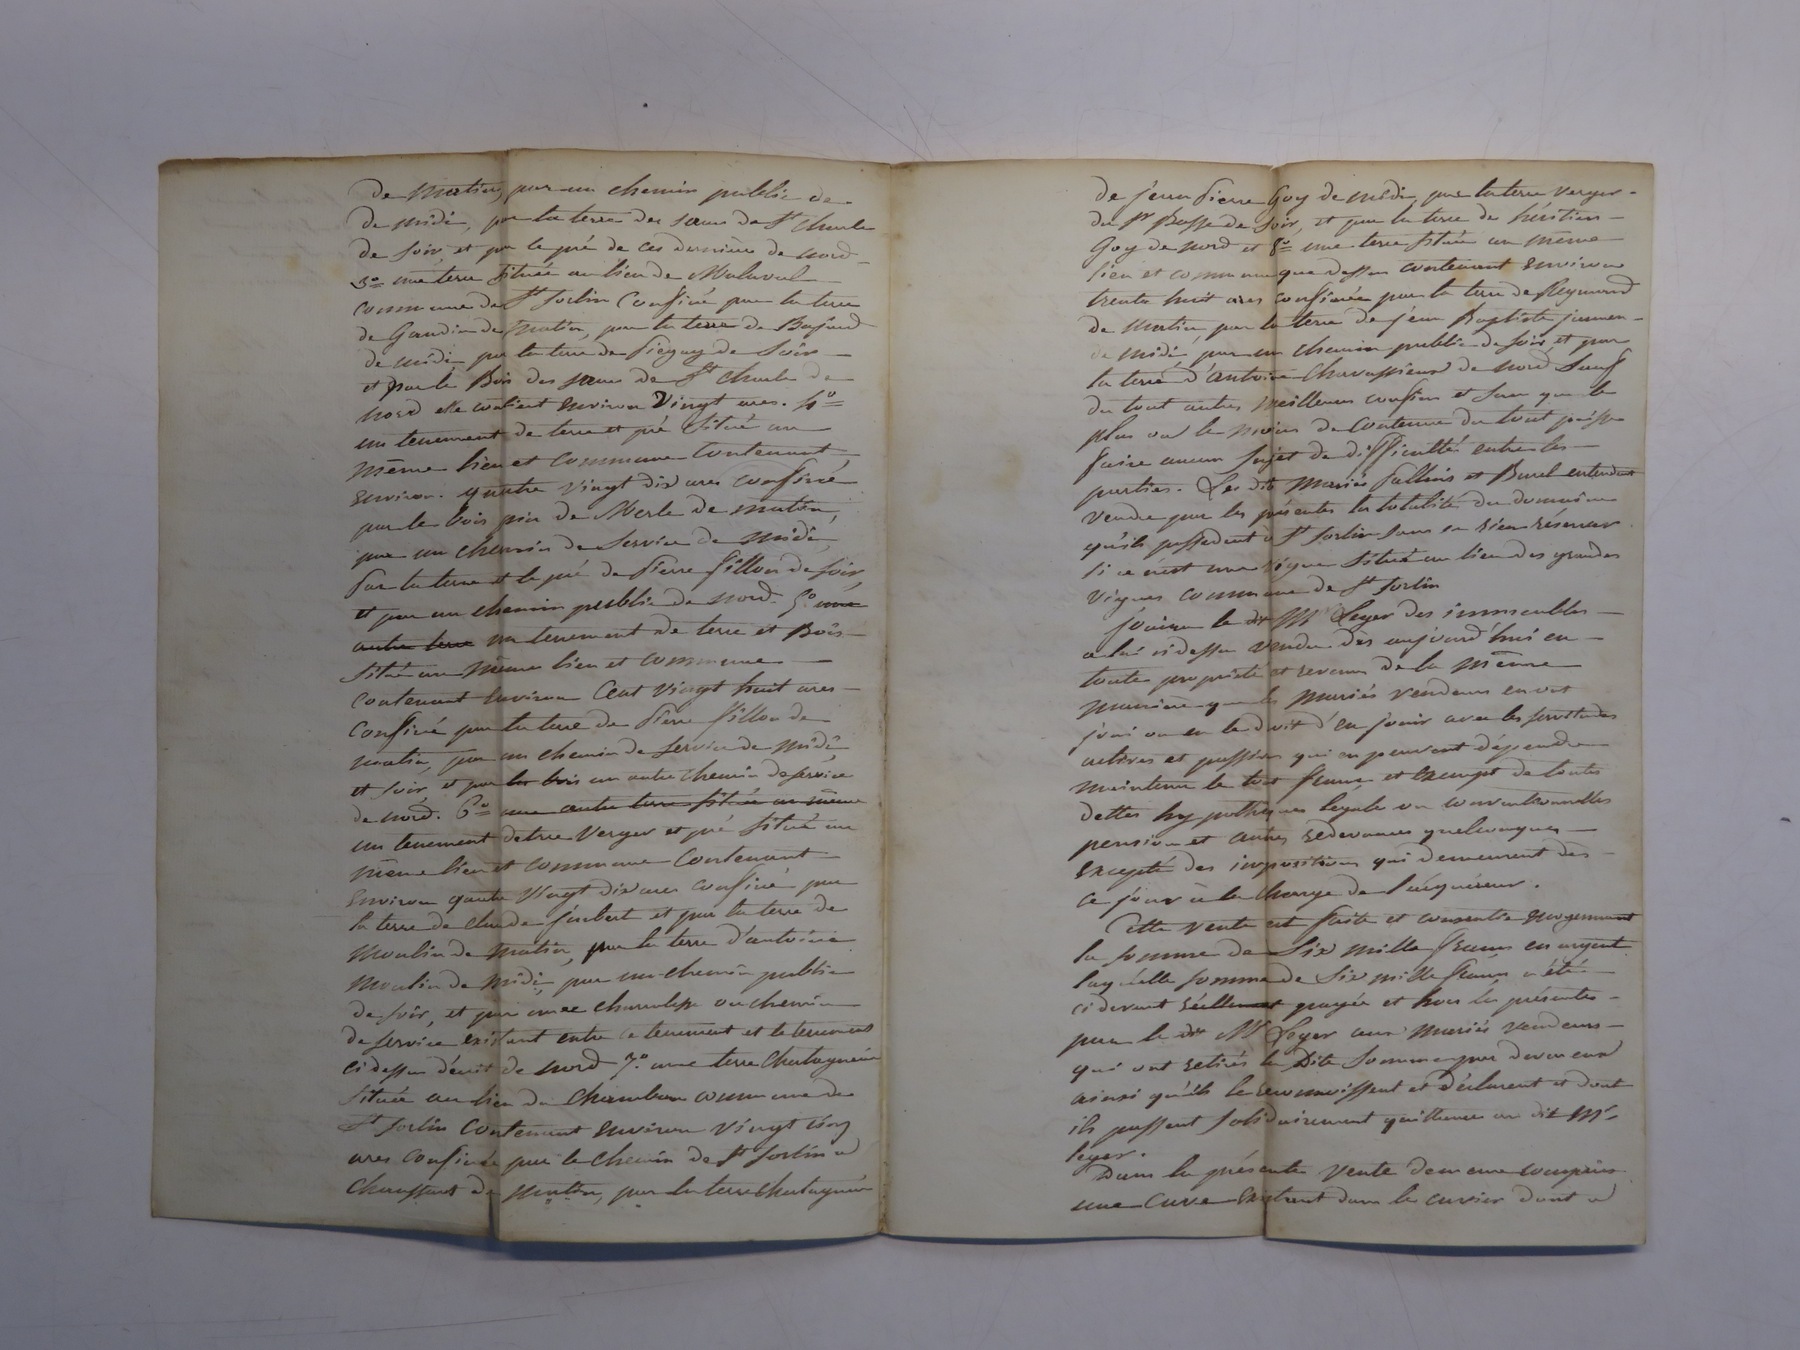 de matin, par un chemin public de
de midi, par la terre des sœurs de St Charles
de soir, et par le pré de ces dernières de nord
3o une terre située au lieu de Malaval
commune de St Sorlin confiné par la terre
de Gaudin de matin, par la terre de
de midi par la terre de Piegay de soir
et par le Bois des sœurs de St Charles de
nord elle contient environ vingt ares. 4o
un tenement de terre et pré situé au
même lieu et commune contenant
environ quatre vingt dix ares confiné
par le bois pin de Merle de matin,
par un chemin de service de midi,
par la terre et le pré de Pierre fillon de soir,
et par un chemin public de nord. 5o une
autre terre un tenement de terre et Bois
situé au même lieu et commune
contenant environ cent vingt huit ares
confiné par la terre de Pierre fillon de
matin, par un chemin de service de midi
et soir, et par les bois un autre chemin de service
de nord. 6o une autre terre située au même
un tenement de terre verger et pré situé au
même lieu et commune contenant
environ quatre vingt dix ares confiné par
la terre de claude joubert et par la terre de
Moulin de matin, par la terre d'antoine
Moulin de midi, par un chemin public
de soir, et par une ou chemin
de service existant entre ce tenement et le tenement
ci dessus décrit de nord 7o une terre Chatagnerie
située au lieu du commune de
St Sorlin contenant environ vingt cinq
ares confinée par le chemin de St Sorlin à
de matin, par la terre Chatagnerie
de jean Pierre Goy de midi, par la terre verger
du Sr de soir, et par la terre des héritiers
Goy de nord et 8o une terre située au même
lieu et commune que dessus contenant environ
trente huit ares confinée par la terre de Reymond
de matin, par la terre de jean Baptiste
de midi, par un chemin public de soir et par
la terre d'antoine de nord sauf
du tout autres meilleurs confins et sans que le
plus ou le moins de contenue du tout puisse
faire aucun sujet de difficultés entre les
parties. Les dits mariés et Burel entendent
vendre par les présentes la totalité du domaine
qu'ils possedent à St Sorlin sans en rien réserver
si ce n'est une vigne située au lieu des grandes
vignes commune de St Sorlin
jouira le dit Mr Leger des immeubles
a lui ci dessus vendu dès aujourd'hui en
toute propriété et revenu de la même
manière que les mariés vendeurs en ont
joui ou eu le droit d'en jouir avec les servitudes
actives et passives qui en peuvent dépendre
maintenu le tout franc et exempt de toutes
dettes hypothèques legales ou conventionnelles
pension et autres redevances quelconques
excepté des impositions qui demeurent dès
ce jour à la charge de l'acquéreur.
Cette vente est faite et consentie moyennant
la somme de Six mille francs en argent
laquelle somme de six mille francs a été
ci devant réellement payée et hors les présentes
par le dit Mr Leger aux mariés vendeurs
qui ont retirés la dite somme par devers eux
ainsi qu'ils le reconnoissent et déclarent et dont
ils passent solidairement quittance au dit Mr
leger.
Dans la présente vente demeure compris
une Cuve existant dans le cuvier dont a